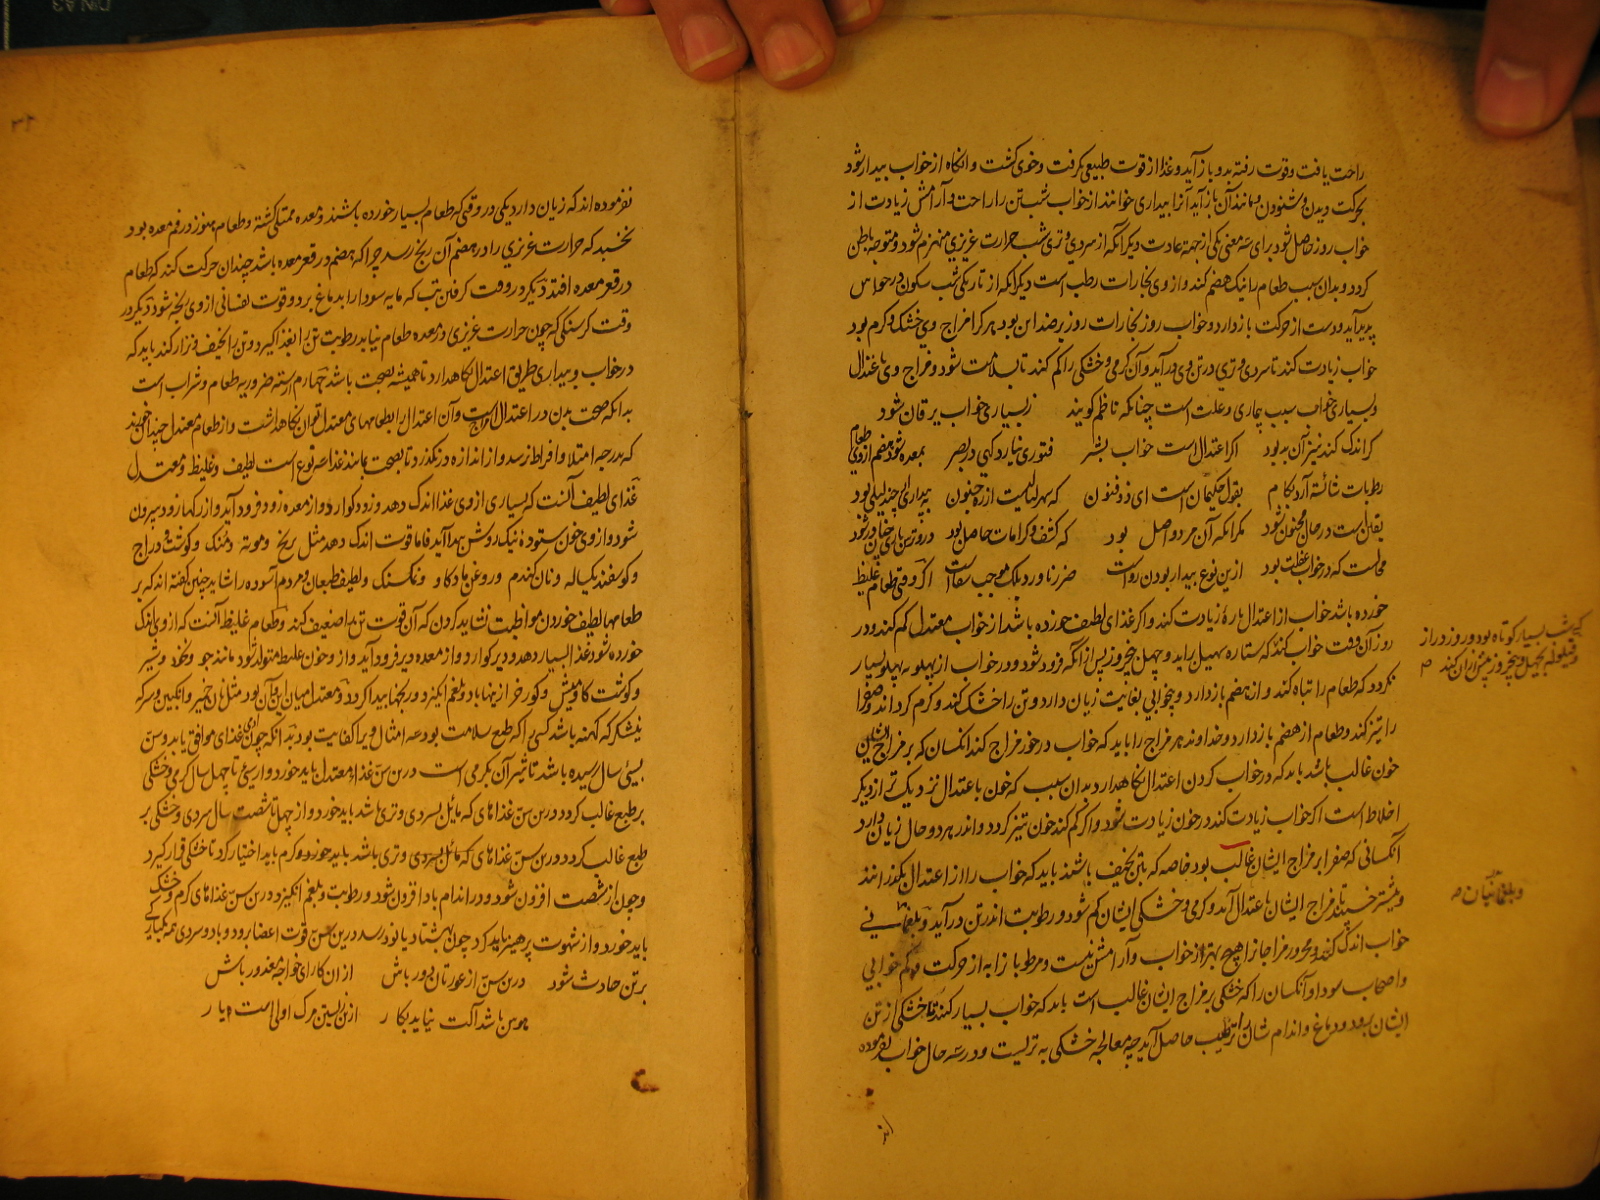 راحت یافت وقوت رفته بدو باز آید و غذا از قوت طبیعی گرفت و خوی کشت و انکاه از خواب بیدار شود
بحرکت و دیدن و شنودن و مانند آن باز آید انرا بیداری خوانند از خواب شب تن را راحت و آرامش زیادت از
خواب روز حاصل شود برای سه معنی یکی از جهة عادت دیگر آنکه از سردی و تری شب حرارت غریزی منهزم شود و متوجه باطن
کردد و بدان سبب طعام را نیک هضم کند و از وی بخارات رطب است دیکر انکه از تاریکی شب سکون در حواس
پدید آید و دست از حرکت باز دارد و خواب روز بخارات روز بر ضد این بود هر کرا مزاج وی خشک و کرم بود
خواب زیادت کند تا سردی و تری در تن وی در آید و آن کرمی و خشکی را کم کند تا بسلامت شود و مزاج وی باعتدال
و بسیاری خواب سبب بیماری و علت است چنانکه ناظم کوید زبسیاری خواب یرقان شود
کر اندک کند نیز آن بد بود اکر اعتدال است خواب بشر فتوری نیارد کهی در بصر بمعده شود هضم از وی طعام
رطوبات شائسته آرد بکام بقول حکیمان است ای ذوفنون که سهر لیالیست از ره جنون به بیداری چند لیلی بود
یقین است در حال مجنون شود مکر انکه آن مرد واصل بود که کشف و کرامات حاصل بود
محالست که در خواب غفلت بود ازین نوع بیدار بودن رواست ضرر ناورد بلک موجب شفاست اکر وقتی طعام غلیظ
خورده باشد خواب از اعتدال باره زیادت کند و اکر غذای لطیف خورده باشد از خواب معتدل کم کند و در
روز آن وقت خواب کند که ستاره سهیل برآید و چهل پنج روز پس از انکه فرود شود و در خواب از پهلو به پهلو بسیار
که شب بسیار کوتاه بود و روز دراز
و قیلوله بچهل و پنج روز پیش ازان کند
نکردد که طعام را تباه کند و از هضم باز دارد و بیخوابی بغایت زیان دارد و تن را خشک کند و کرم کرداند و صفرا
را تیز کند و طعام از هضم باز دارد و خداوند هر مزاج را باید که خواب در خور مزاج کند انکسان که بر مزاج ایشان
خون غالب باشد باید که در خواب کردن اعتدال نکاهدارد بدان سبب که خون باعتدال نزدیک تر از دیکر
اخلاط است اکر خواب زیادت کند در خون زیادت شود و اکر کم کند خون تیز کردد و اندر هر دو حال زیان دارد
آنکسانی که صفرا بر مزاج ایشان غالب بود خاصه که بتن نحیف باشند باید که خواب را از اعتدال بکذرانند
و بیشتر خسپند تا مزاج ایشان باعتدال آید و کرمی و خشکی ایشان کم شود و رطوبت اندر تن در آید و بلغمانی
و بلغمانیان
خواب اندک کند و محرور مزاجانرا هیچ بهتر از خواب و آرامش نیست و مرطوبانرا به از حرکت و کم خوابی
و اصحاب سودا و آنکسان را که خشکی بر مزاج ایشان غالب است باید که خواب بسیار کنند تا خشکی از تن
ایشان برود و دماغ و اندام شان را ترطیب حاصل آید چه معالجه خشکی به تریست و در سه حال خواب نفرموده
اند
نفرموده اند که زیان دارد یکی در وقتی که طعام بسیار خورده باشند و معده ممتلی کشته و طعام هنوز در فم معده بود
نخسبد که حرارت غریزی را در هضم آن رنج رسد چرا که هضم در قعر معده باشد چندان حرکت کند که طعام
در قعر معده افتد دیکر در وقت کرفتن تب که مایه سودا را بدماغ برد و قوت نفسانی از وی رنجه شود دیکر در
وقت کرسنکی که چون حرارت غریزی در معده طعام نیابد رطوبت تن را بغذا کیرد و تن را نحیف و نزار کند باید که
در خواب و بیداری طریق اعتدال نکاهدارد تا همیشه بصحت باشد چهارم ازسته ضروریه طعام و شراب است
بدانکه صحت بدن در اعتدال مزاج است وآن اعتدال را بطعامهای معتدل توان نکاهداشت و از طعام معتدل چندان خورند
که بدرجه امتلا و افراط نرسد و از اندازه در نکذرد تا بصحت بمانند غذا سه نوع است لطیف و غلیظ و معتدل
غذای لطیف آنست که بسیاری از وی غذا اندک دهد و زود کوارد و از معده زود فرود آید و از رکها زود بیرون
شود و از وی خون ستوده نیک روشن پیدا آید فاما قوت اندک دهد مثل برنج و مویته و مُنک و کوشت دراج
و کوسفند یکساله و نان کندم و روغن ماده کاو و نمکسنک و لطیف طبعان و مردم آسوده را شاید چنین کفته اند که بر
طعامها لطیف خوردن مواظبت نشاید کردن که آن قوت تن را ضعیف کند و طعام غلیظ آنست که از وی اندک
خورده شود غذا بسیار دهد و دیر کوارد و از معده دیر فرود آید و از و خون غلیظ متولد شود مانند جو و نخود و شیر
و کوشت کاومیش و کورخر از ینها باد و بلغم انکیزد و رنجها پیدا کردد و معتدل میان این و آن بود مثل نان خمیر و انکبین و سرکه
نیشکر که کهنه باشد کسی را که طبع سلامت بود سه امثال و یرا کفایت بود بدانکه چون آدمی غذای موافق یابد و سن
بسی سال رسیده باشد تاثیر آن بکرمی است درین سن غذا و معتدل باید خورد و از سی تا چهل سال کرمی و خشکی
بر طبع غالب کردد درین سن غذاهای که مایل بسردی و تری باشد باید خورد و از چهل تا شصت سال سردی و خشکی بر
طبع غالب کردد درین سن غذاهای که مائل بسردی و تری باشد باید خورد و کرم باید اختیار کرد تا خشکی قرار کیرد
و چون از شصت افزون شود و در اندام باد افزون شود و رطوبت و بلغم انکیزد درین سن غذاهای کرم و خشک
باید خورد و از شهوت پرهیز باید کرد چون بهشتاد یا نود رسد درین سن قوت اعضا برود و باد و سردی
بر تن حادث شود درین سن از عورتان دور باش ازان کارای خواجه معذور باش
چو سن باشد آلت نیاید بکار ازین زیستن مرک اولی است ویار